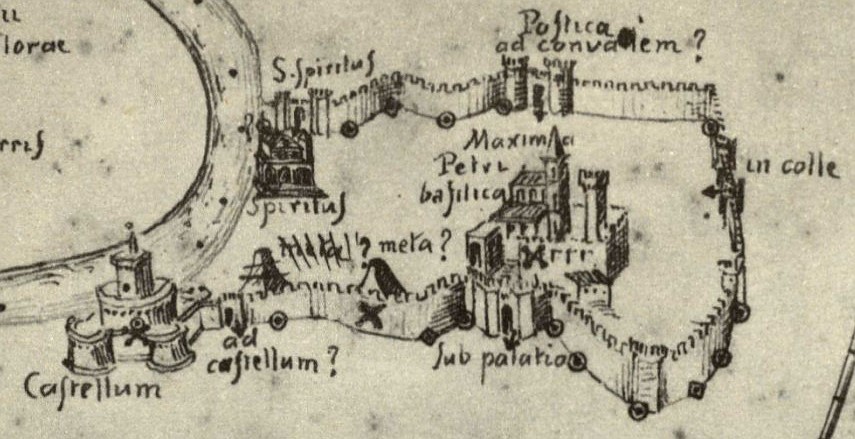 lorae
S. Spiritus
Postica
ad convallem ?
Maxima
Petri
basilica
in colle
Spiritus
? meta ?
ad
castellum ?
Castellum
Sub palatio